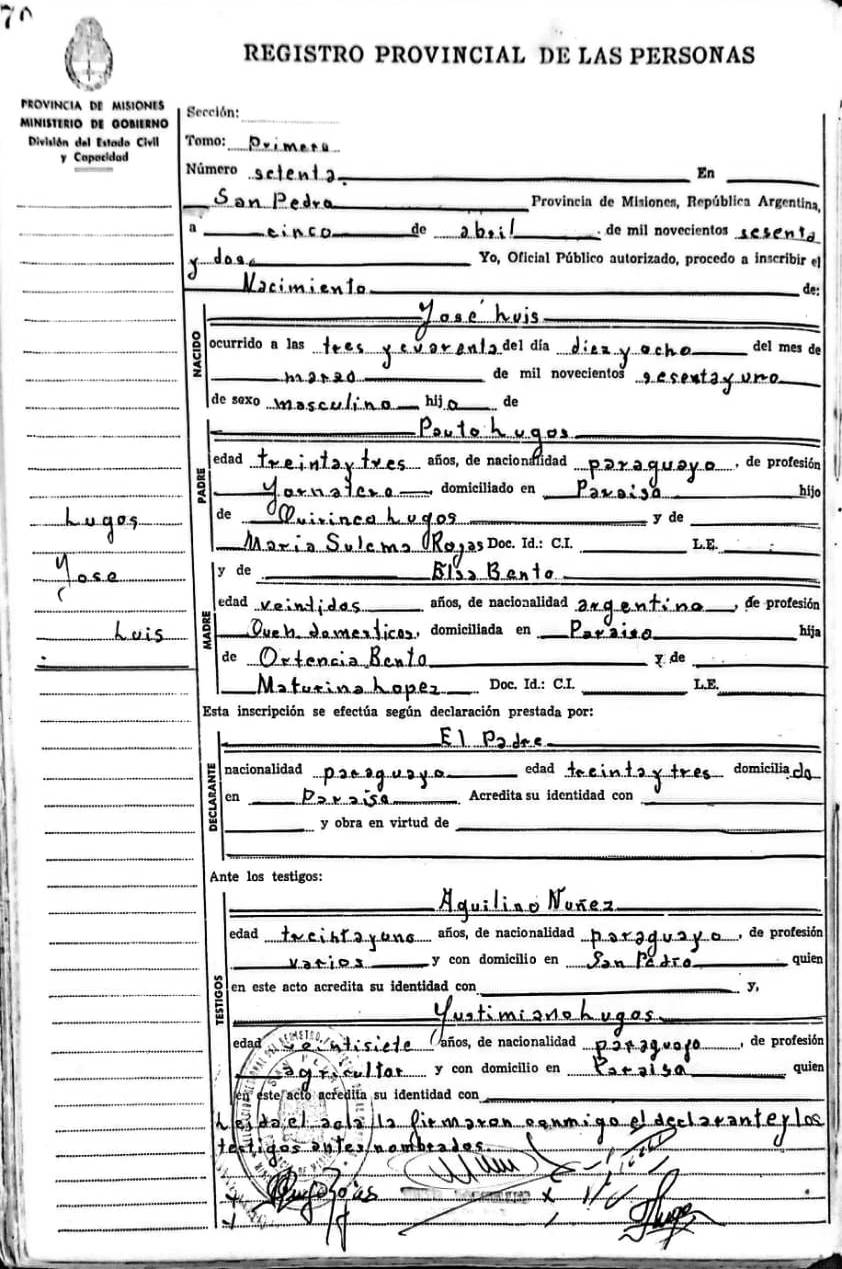 70
REGISTRO PROVINCIAL DE LAS PERSONAS
PROVINCIA DE MISIONES
MINISTERIO DE GOBIERNO
División del Estado Civil
y Capacidad
Sección:
Tomo: Primero
Número setenta. En
San Pedro Provincia de Misiones, República Argentina,
a cinco de abril de mil novecientos sesenta
y dos. Yo, Oficial Público autorizado, procedo a inscribir el
Nacimiento de:
NACIDO
José Luis
ocurrido a las tres y cuarenta del día diez y ocho del mes de
marzo de mil novecientos sesenta y uno
de sexo masculino hijo de
PADRE
Lugos
edad treinta y tres años, de nacionalidad paraguayo, de profesión
Yornalero, domiciliado en Paraiso hijo
de Lugos y de
Maria Sulema Rojas Doc. Id.: C.I. L.E.
Lugos
Jose
Luis
MADRE
y de Elsa Bento
edad veintidos años, de nacionalidad argentina, de profesión
Queh. domesticos, domiciliada en Paraiso hija
de Ortencia Bento y de
Maturina Lopez Doc. Id.: C.I. L.E.
Esta inscripción se efectúa según declaración prestada por:
DECLARANTE
El Padre
nacionalidad paraguayo edad treinta y tres domiciliado
en Paraiso Acredita su identidad con
y obra en virtud de
Ante los testigos:
TESTIGOS
Aquilino Nuñez
edad treinta y uno años, de nacionalidad paraguayo, de profesión
varios y con domicilio en San Pedro quien
en este acto acredita su identidad con y,
Yustimiano Lugos
edad veintisiete años, de nacionalidad paraguayo, de profesión
agricultor y con domicilio en Paraiso quien
en este acto acredita su identidad con
Leida el acta la firmaron conmigo el declarante y los
testigos antes nombrados